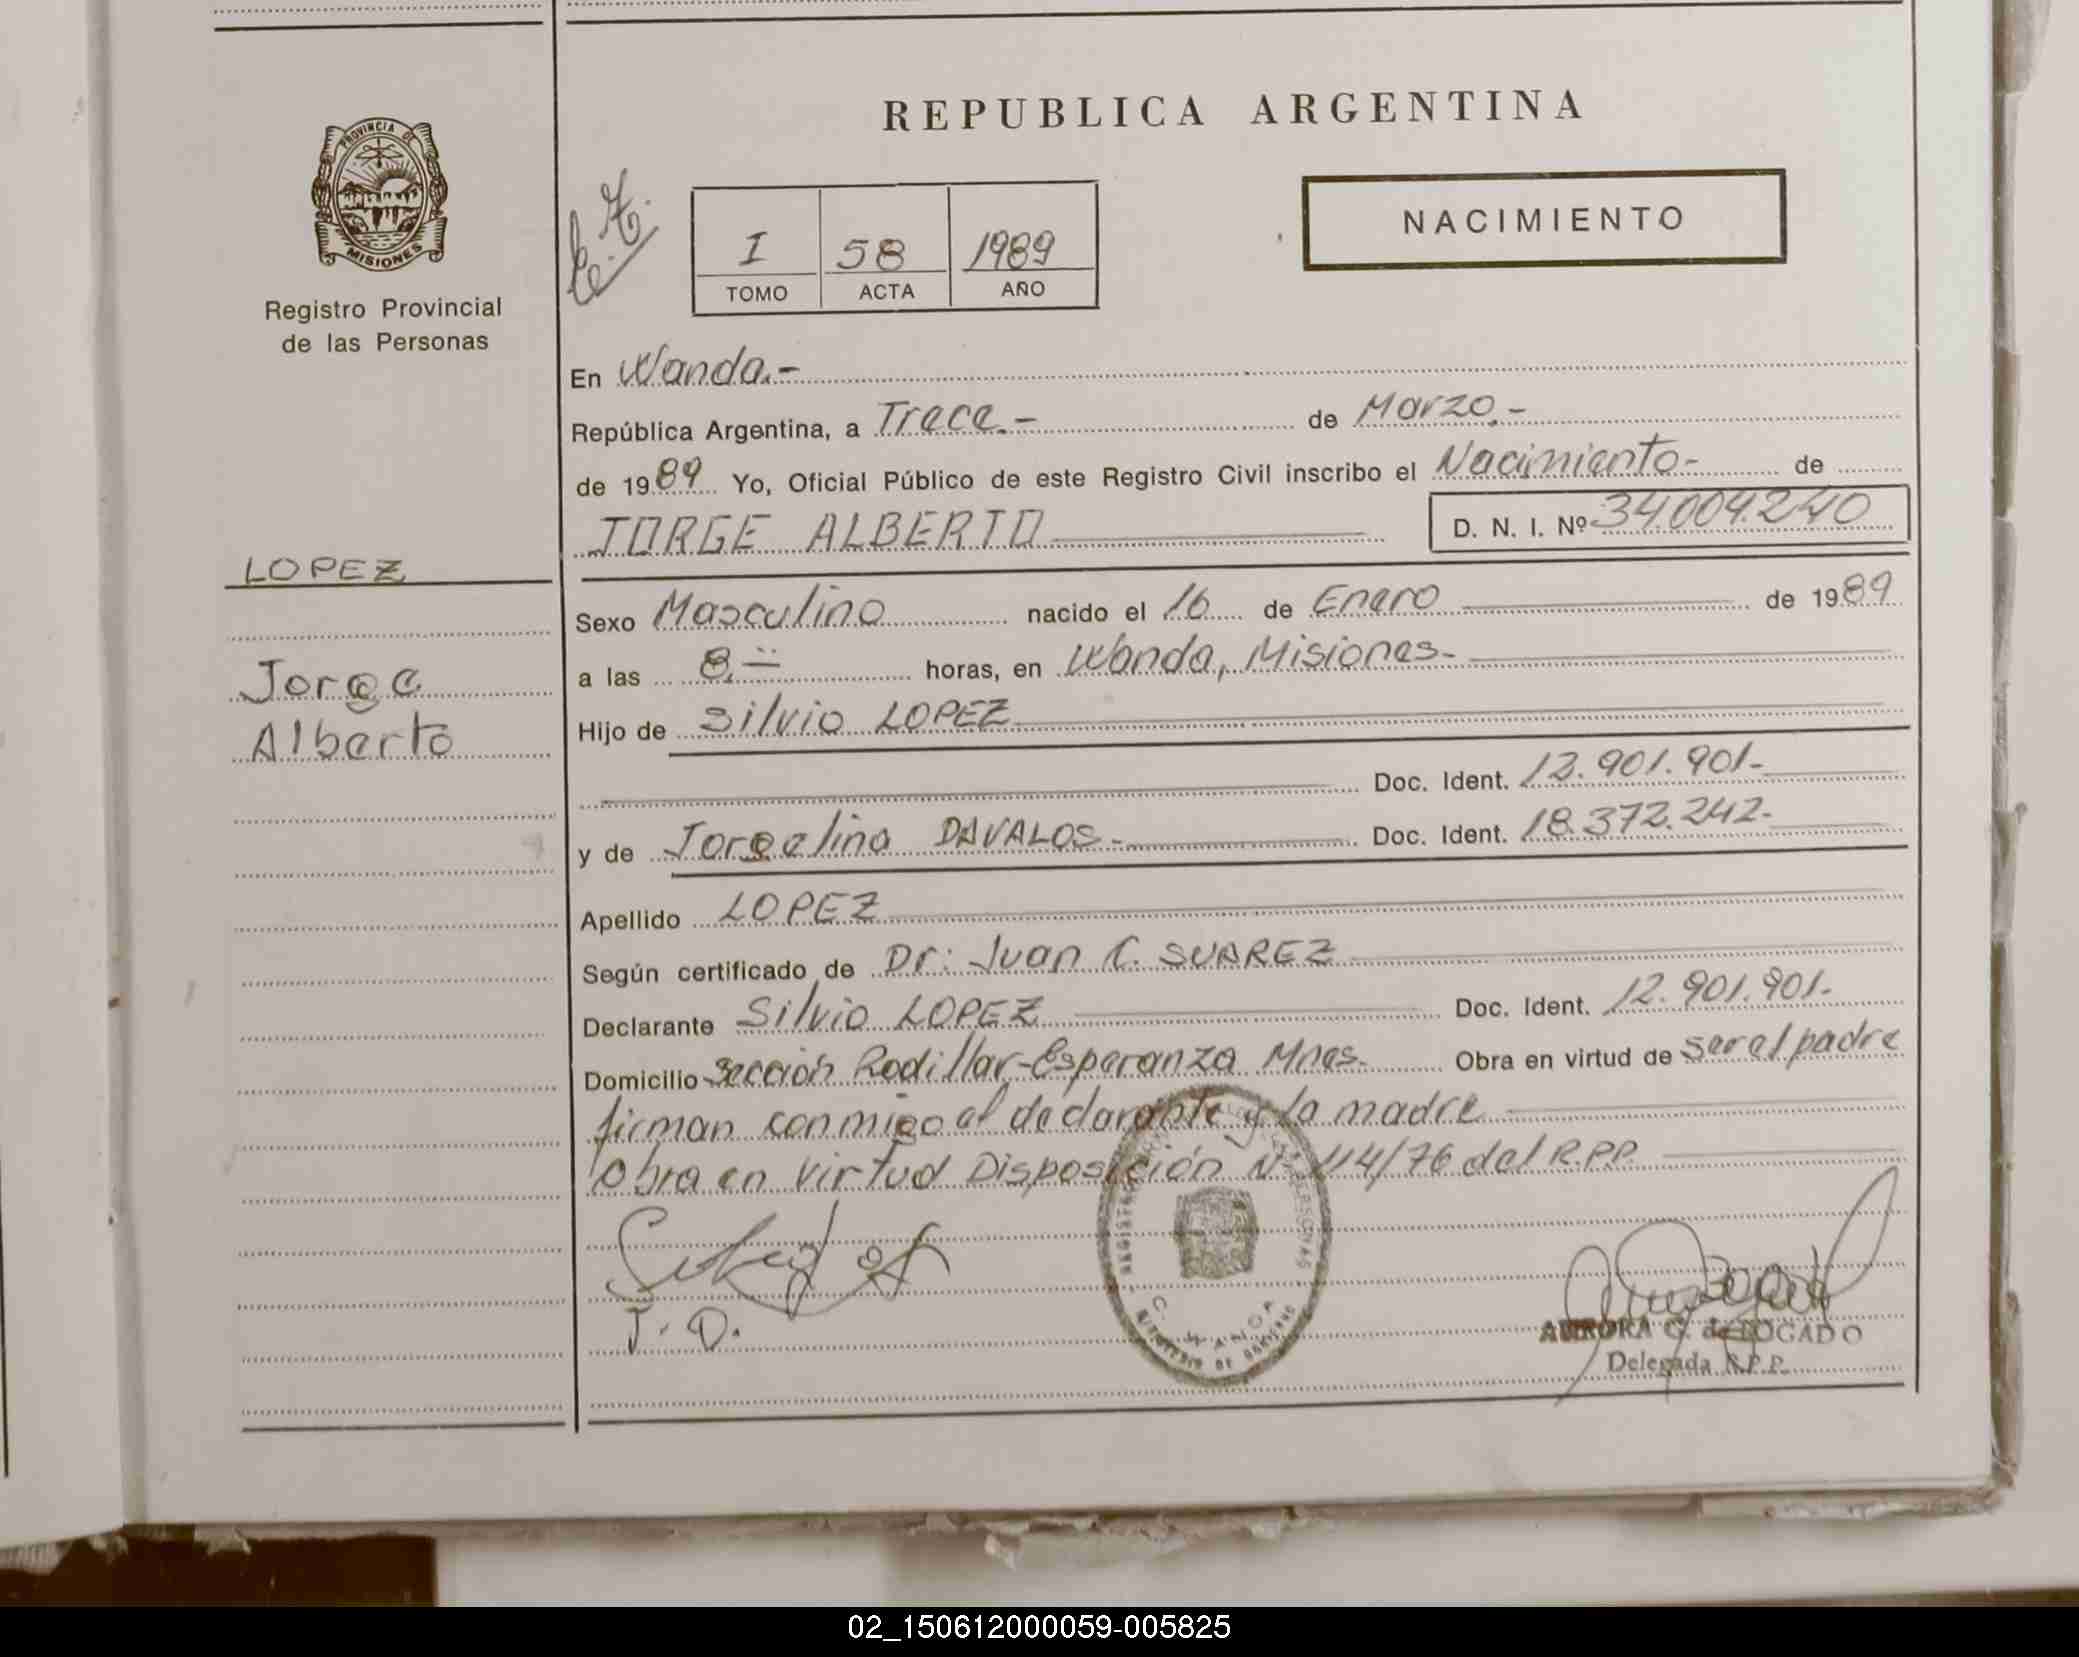 REPUBLICA ARGENTINA
PROVINCIA DE
MISIONES
Registro Provincial
de las Personas
I 58 1989
TOMO ACTA AÑO
NACIMIENTO
En Wanda.-
República Argentina, a Trece.- de Marzo.-
de 1989 Yo, Oficial Público de este Registro Civil inscribo el Nacimiento- de
JORGE ALBERTO D. N. I. Nº 34.004.240
LOPEZ
Jorge
Alberto
Sexo Masculino nacido el 16 de Enero de 1989
a las 8.- horas, en Wanda, Misiones-
Hijo de Silvio LOPEZ
Doc. Ident. 12.901.901-
y de Jorgelina DAVALOS- Doc. Ident. 18.372.242-
Apellido LOPEZ
Según certificado de Dr: Juan C. SUAREZ
Declarante Silvio LOPEZ Doc. Ident. 12.901.901-
Domicilio Sección Rodillar-Esperanza Mnes. Obra en virtud de ser el padre
firman conmigo el declarante y la madre
Obra en virtud Disposición Nº 114/76 del R.P.P.
J. D.
WANDA
MINISTERIO DE GOBIERNO
AURORA G. de BOGADO
Delegada R.P.P.
02_150612000059-005825